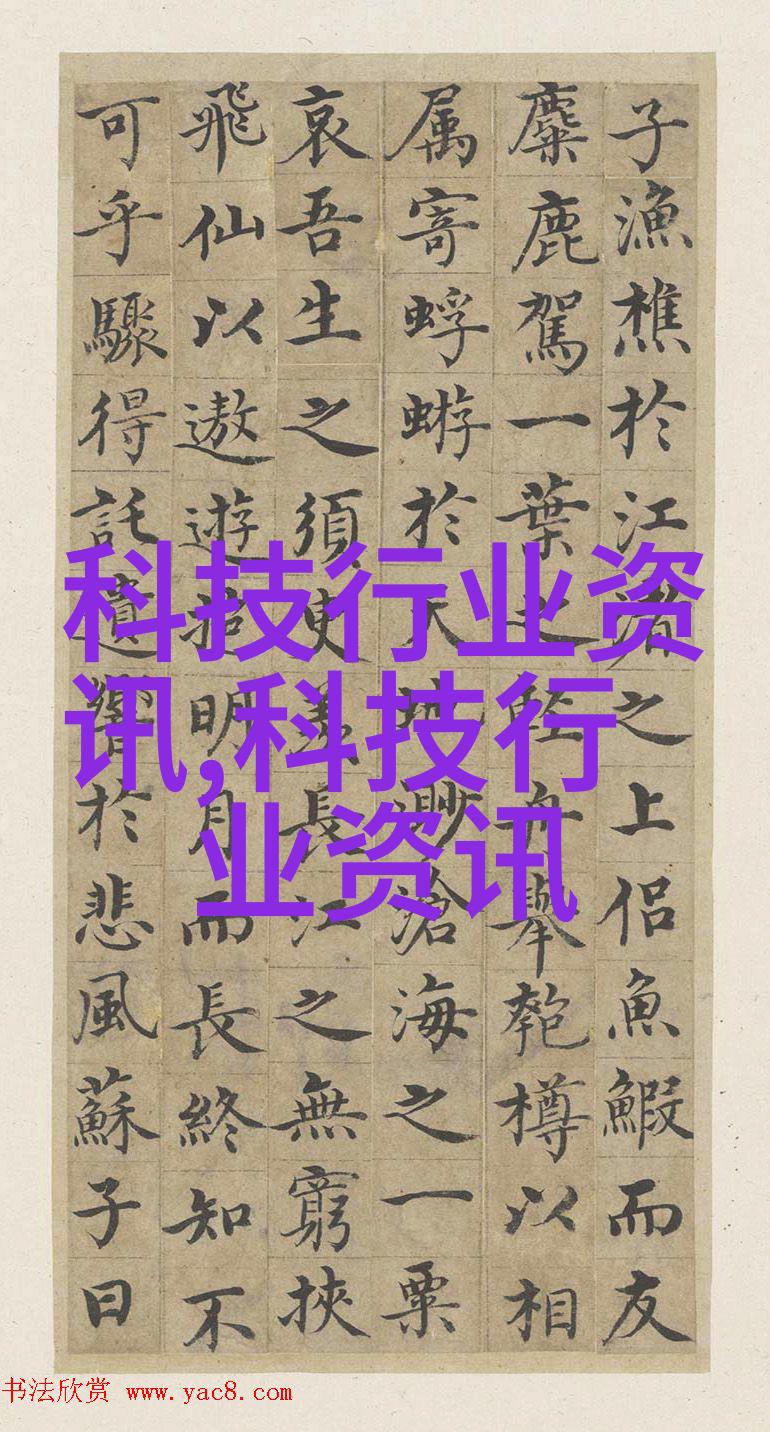 子漁樵於江渚之上侶魚鰕而友
麋鹿駕一葉之輕舟舉匏樽以相
属寄蜉蝣於天地渺滄海之一粟
哀吾生之須臾羨長江之無窮挾
飛仙以遨遊抱明月而長終知不
可乎驟得託遺響於悲風蘇子曰
科技行业资
讯,科技行
业资讯
书法欣赏 www.yac8.com